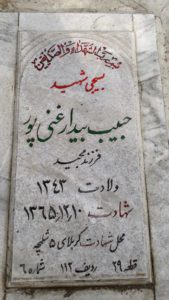 بسیجی شهید
حبیب بیدار غنی پور
فرزند مجید
ولادت ۱۳۴۳
شهادت ۱۳۶۵/۱۲/۱۰
محل شهادت کربلای ۵ شلمچه
قطعه ۲۹ ردیف ۱۱۲ شماره ۶